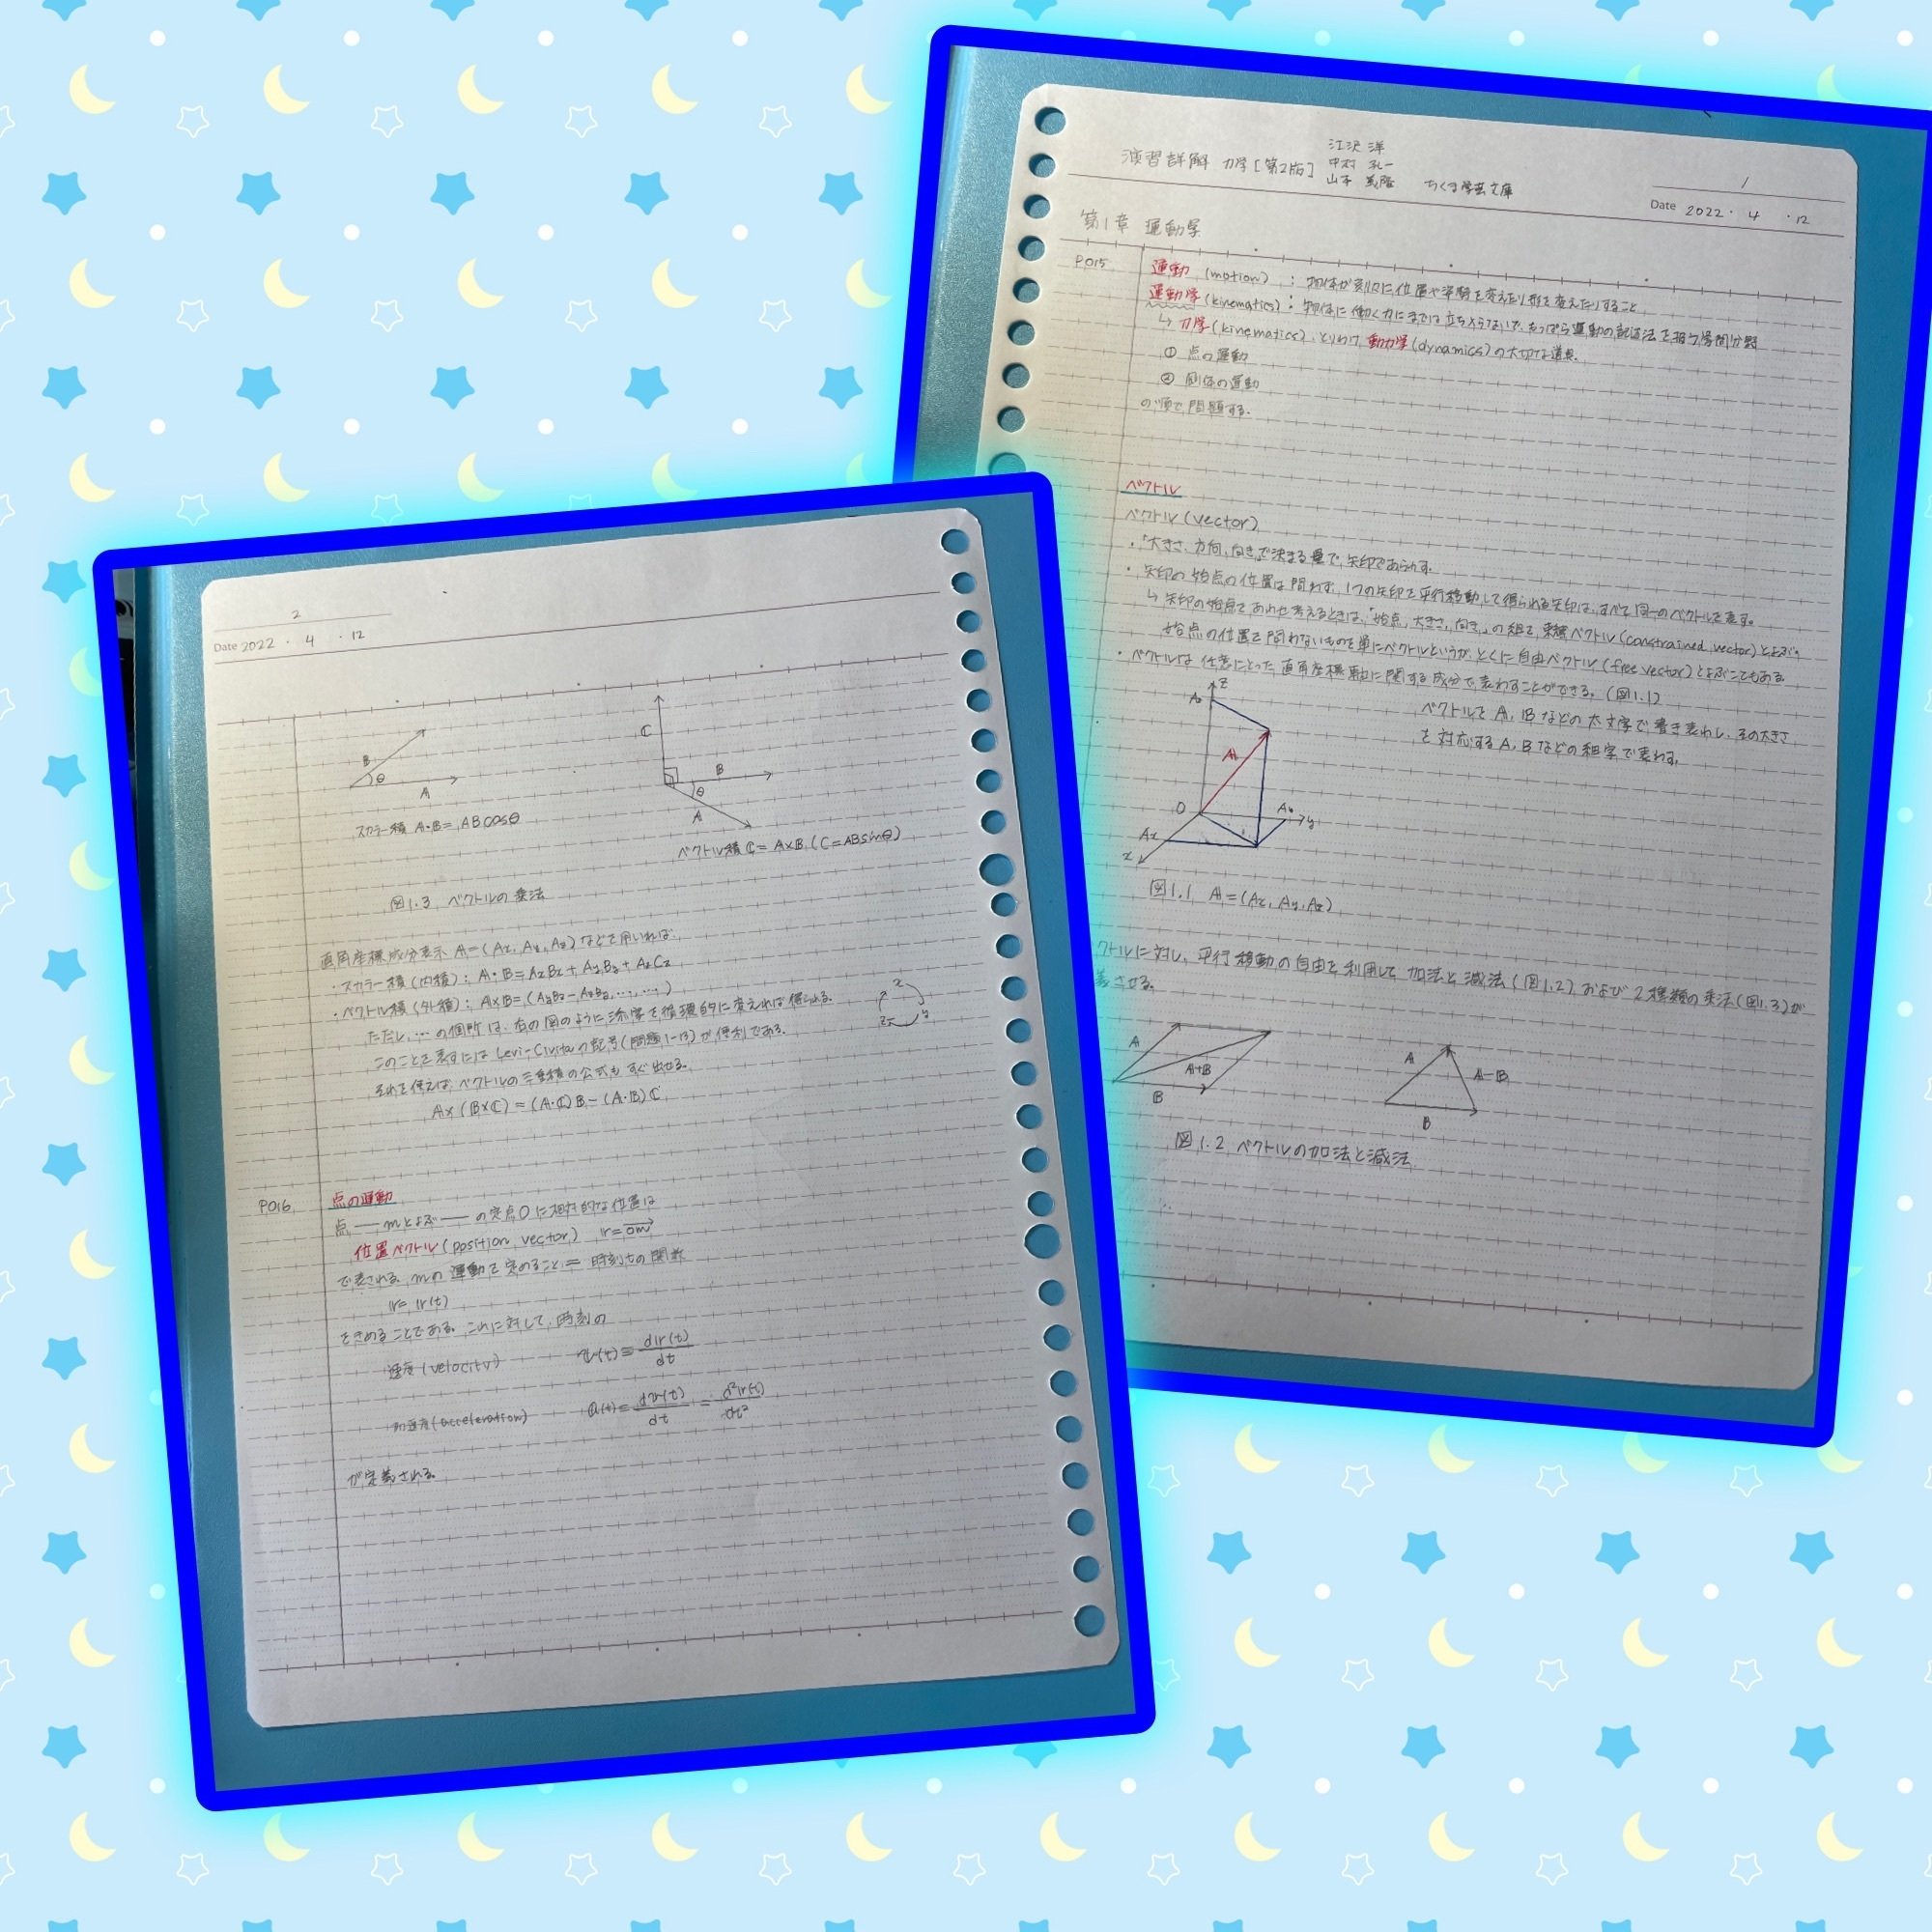 演習詳解 力学[第2版]
江沢 洋
中村 孔一
山本 義隆
ちくま学芸文庫
1
Date 2022・4・12
第1章 運動学
P015
運動 (motion) : 物体が刻々に位置や姿勢を変えたり形を変えたりすること
運動学(kinematics): 物体に働く力にまでは立ち入らないで、もっぱら運動の記述法を扱う学問分野
↳ 力学(kinematics)、とりわけ動力学(dynamics)の大切な道具.
① 点の運動
② 剛体の運動
の順で問題する.
ベクトル
ベクトル(vector)
・「大きさ、方向、向き」で決まる量で、矢印であらわす.
・矢印の始点の位置は問わず、1つの矢印を平行移動して得られる矢印は、すべて同一のベクトルを表す.
↳ 矢印の始点もあわせ考えるときは、「始点、大きさ、向き」の組を、束縛ベクトル(constrained vector)とよぶ.
始点の位置を問わないものを単にベクトルというが、とくに自由ベクトル(free vector)とよぶこともある
・ベクトルは任意にとった直角座標軸に関する成分で表わすことができる. (図1.1)
ベクトルをA, Bなどの太文字で書き表わし、その大きさ
を対応するA, Bなどの細字で表わす.
z
A
O
y
Ax
x
図1.1 A=(Ax, Ay, Az)
クトルに対し、平行移動の自由を利用して、加法と減法(図1.2)、および2種類の乗法(図1.3)が
義させる.
A
A+B
B
A
A-B
B
図1.2 ベクトルの加法と減法
2
Date 2022・4・12
B
θ
A
スカラー積 A・B=ABcosθ
C
B
θ
A
ベクトル積 C=A×B (C=ABsinθ)
図1.3 ベクトルの乗法
直角座標成分表示 A=(Ax, Ay, Az)などを用いれば、
・スカラー積(内積): A・B=AxBx+AyBy+AzCz
・ベクトル積(外積): A×B=(AyBz-AzBy, …, …)
ただし、…の個所は、右の図のように添字を循環的に変えれば得られる.
x
y
z
このことを表すにはLevi-Civitaの記号(問題1-13)が便利である.
それを使えば、ベクトルの三重積の公式もすぐ出せる.
A×(B×C)=(A・C)B-(A・B)C
P016
点の運動
点 — mとよぶ — の定点Oに相対的な位置は
位置ベクトル(position vector) r=Om
で表される. mの運動を定めること = 時刻tの関数
r=r(t)
をきめることである. これに対して、時刻の
速度(velocity) v(t)≡dr(t)/dt
加速度(acceleration) a(t)=dv(t)/dt=d²r(t)/dt²
が定義される.